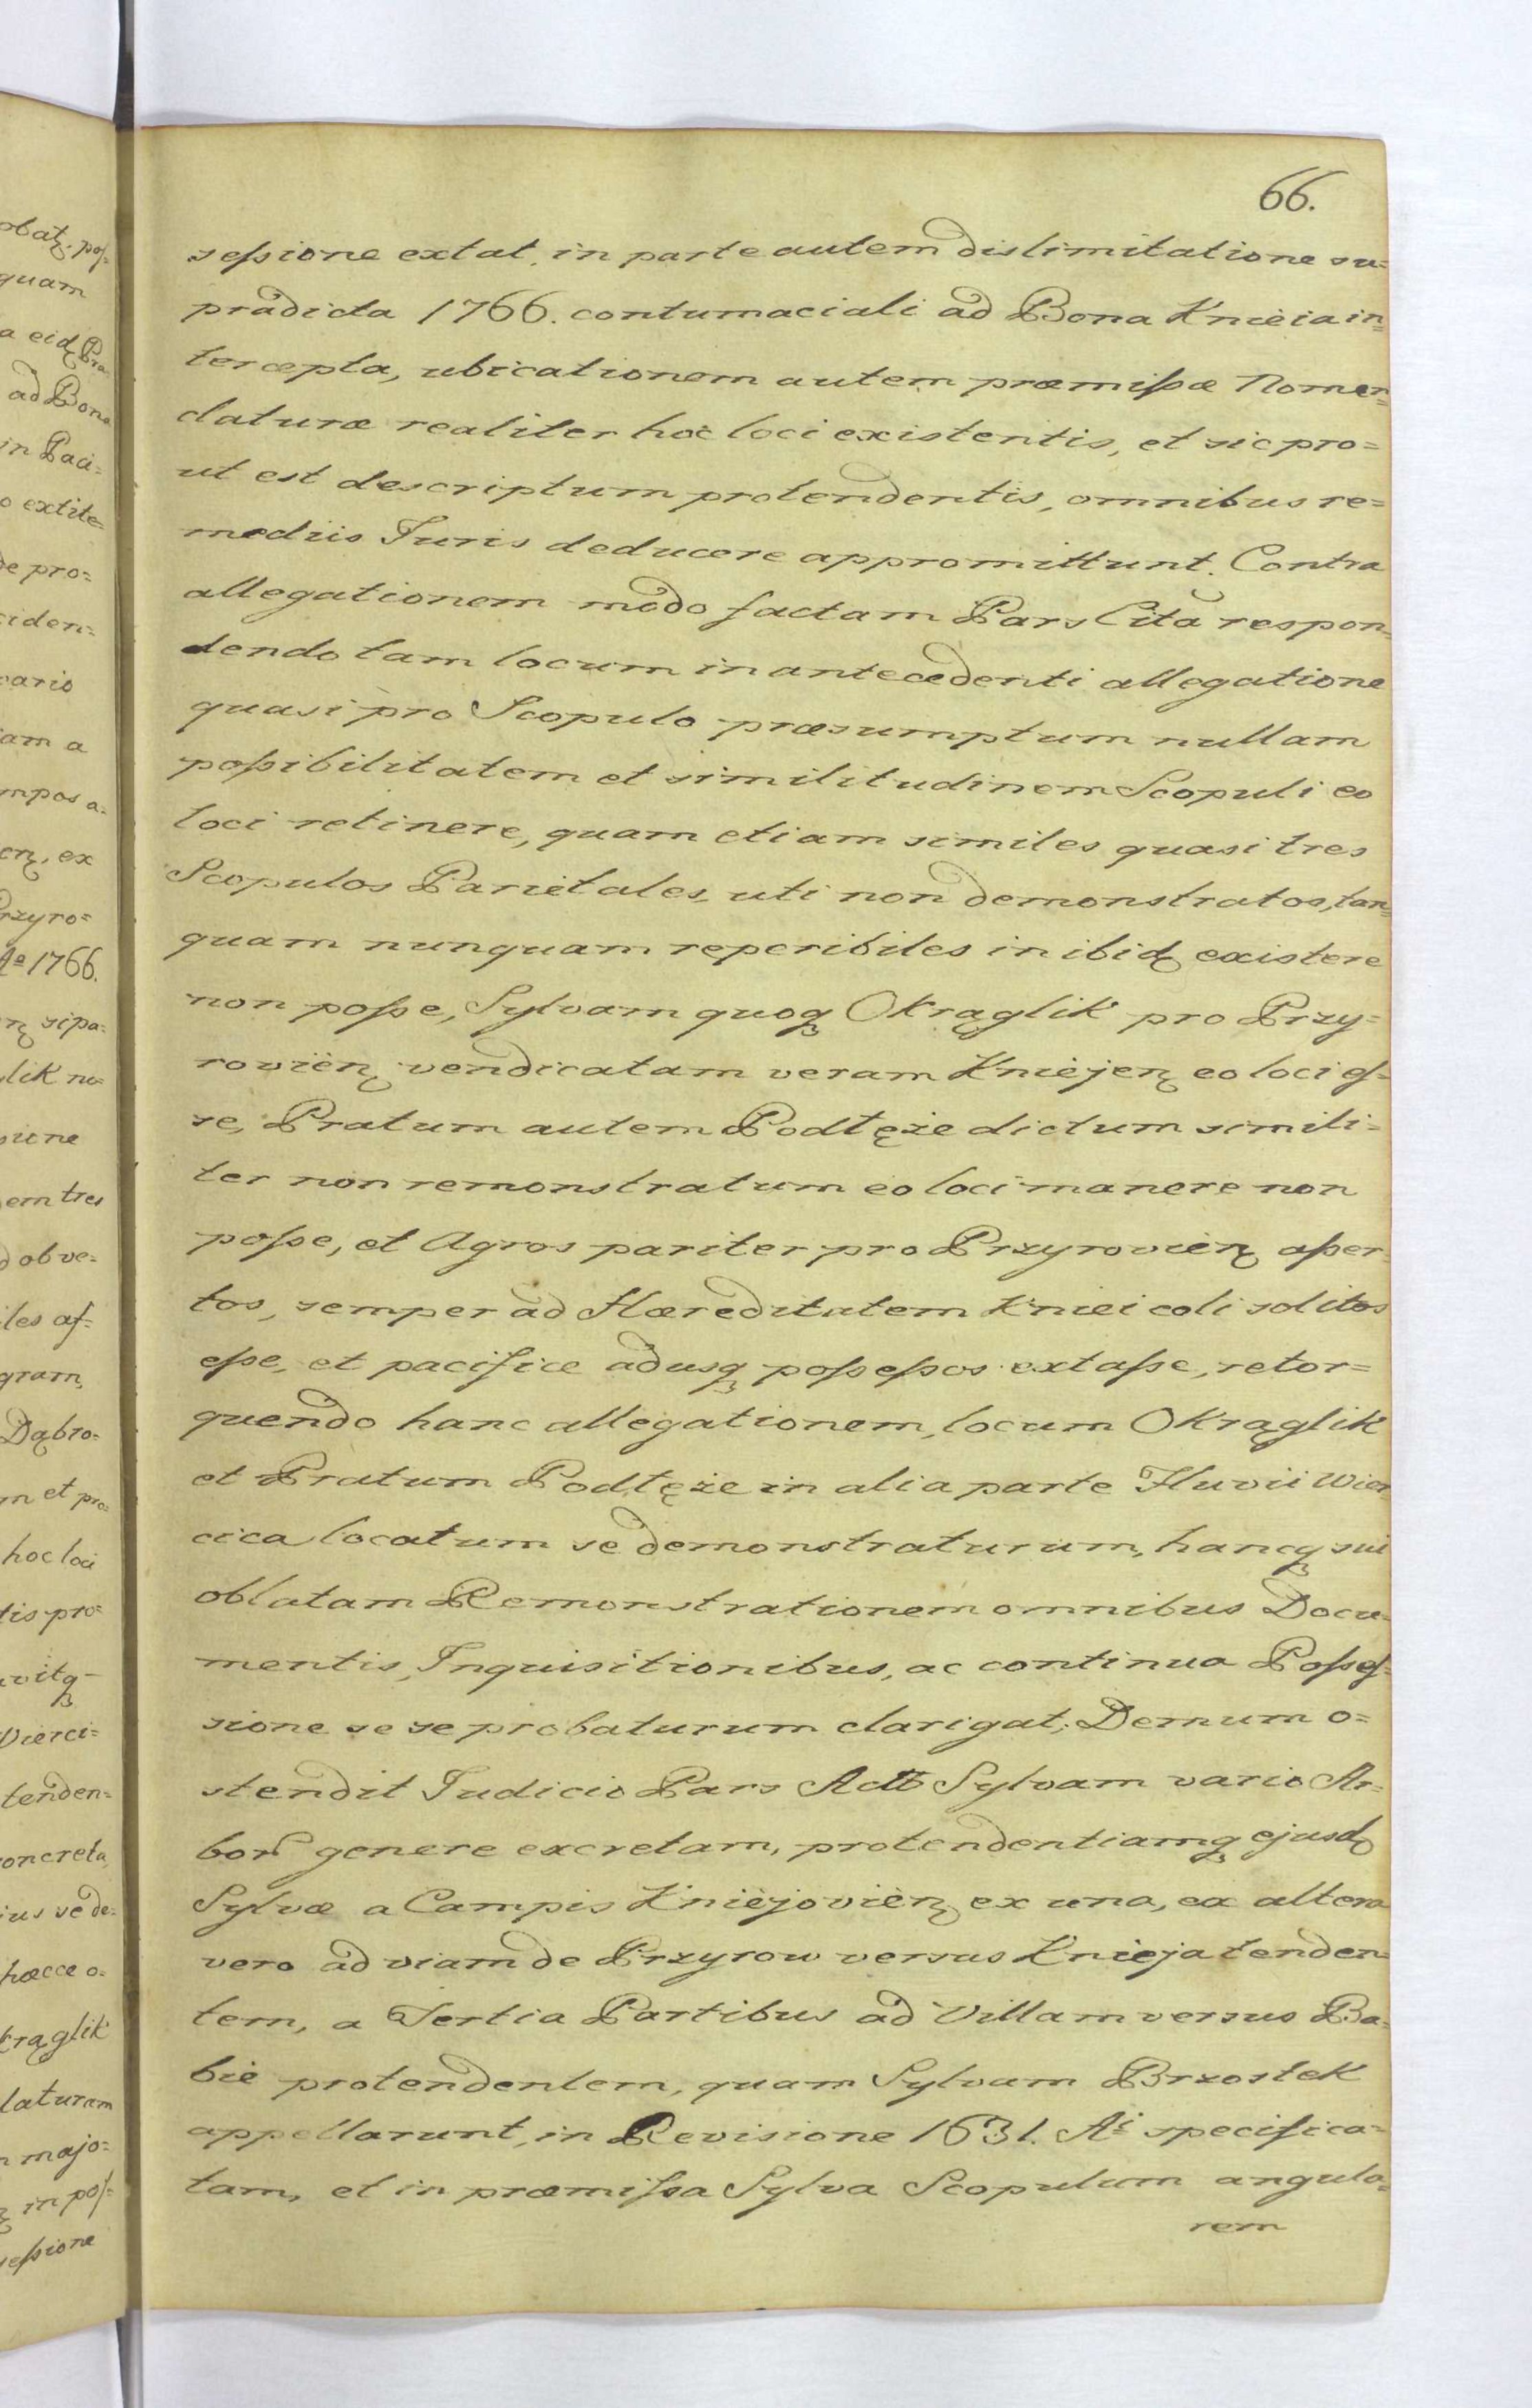 66.
sessione extat, in parte autem dislimitatione su=
prădicta 1766. contumaciali ad Bona Knieia in=
tercepta, ubicationem autem præmissæ Nomen=
claturæ realiter hoc loci existentis, et sic pro=
ut est descriptum protendentis, omnibus re=
mediis Juris deducere appromittunt. Contra
allegationem modo factam Pars Cita respon=
dendo tam locum in antecedenti allegatione
quasi pro Scopulo præsumptum nullam
possibilitatem et similitudinem Scopuli eo
loci retinere, quam etiam similes quasi tres
Scopulos Parietales, uti non demonstratos, tan=
quam nunquam reperibiles in ibidꝫ existere
non posse, Sylvam quoqꝫ Okrąglik pro Przy=
rovienꝫ vendicatam veram Kniejenꝫ eo loci es=
se, Pratum autem Podłęże dictum simili=
ter non remonstratum eo loci manere non
posse, et Agros pariter pro Przyrovienꝫ asser
tos, semper ad Hæreditatem Kniei coli solitos
esse, et pacifice adusqꝫ possessos extasse, retor=
quendo hanc allegationem, locum Okrąglik
et Pratum Podłęże in alia parte Fluvii Wier
cica locatum se demonstraturum, hancqꝫ sui
oblatam Remonstrationem omnibus Docu=
mentis, Inquisitionibus, ac continua Posses=
sione se se probaturum clarigat; Demum o=
stendit Judicio Pars Act Sylvam vario Ar=
bor genere excretam, protendentiamqꝫ ejusdꝫ
Sylvæ a Campis Kniejovienꝫ ex una, ex altera
vero ad viam de Przyrow versus Knieja tenden=
tem, a Tertia Partibus ad Villam versus Ba=
bie protendentem, quam Sylvam Brzostek
appellarunt, in Revisione 1631. Ai specifica=
tam, et in præmissa Sylva Scopulum angula=
rem